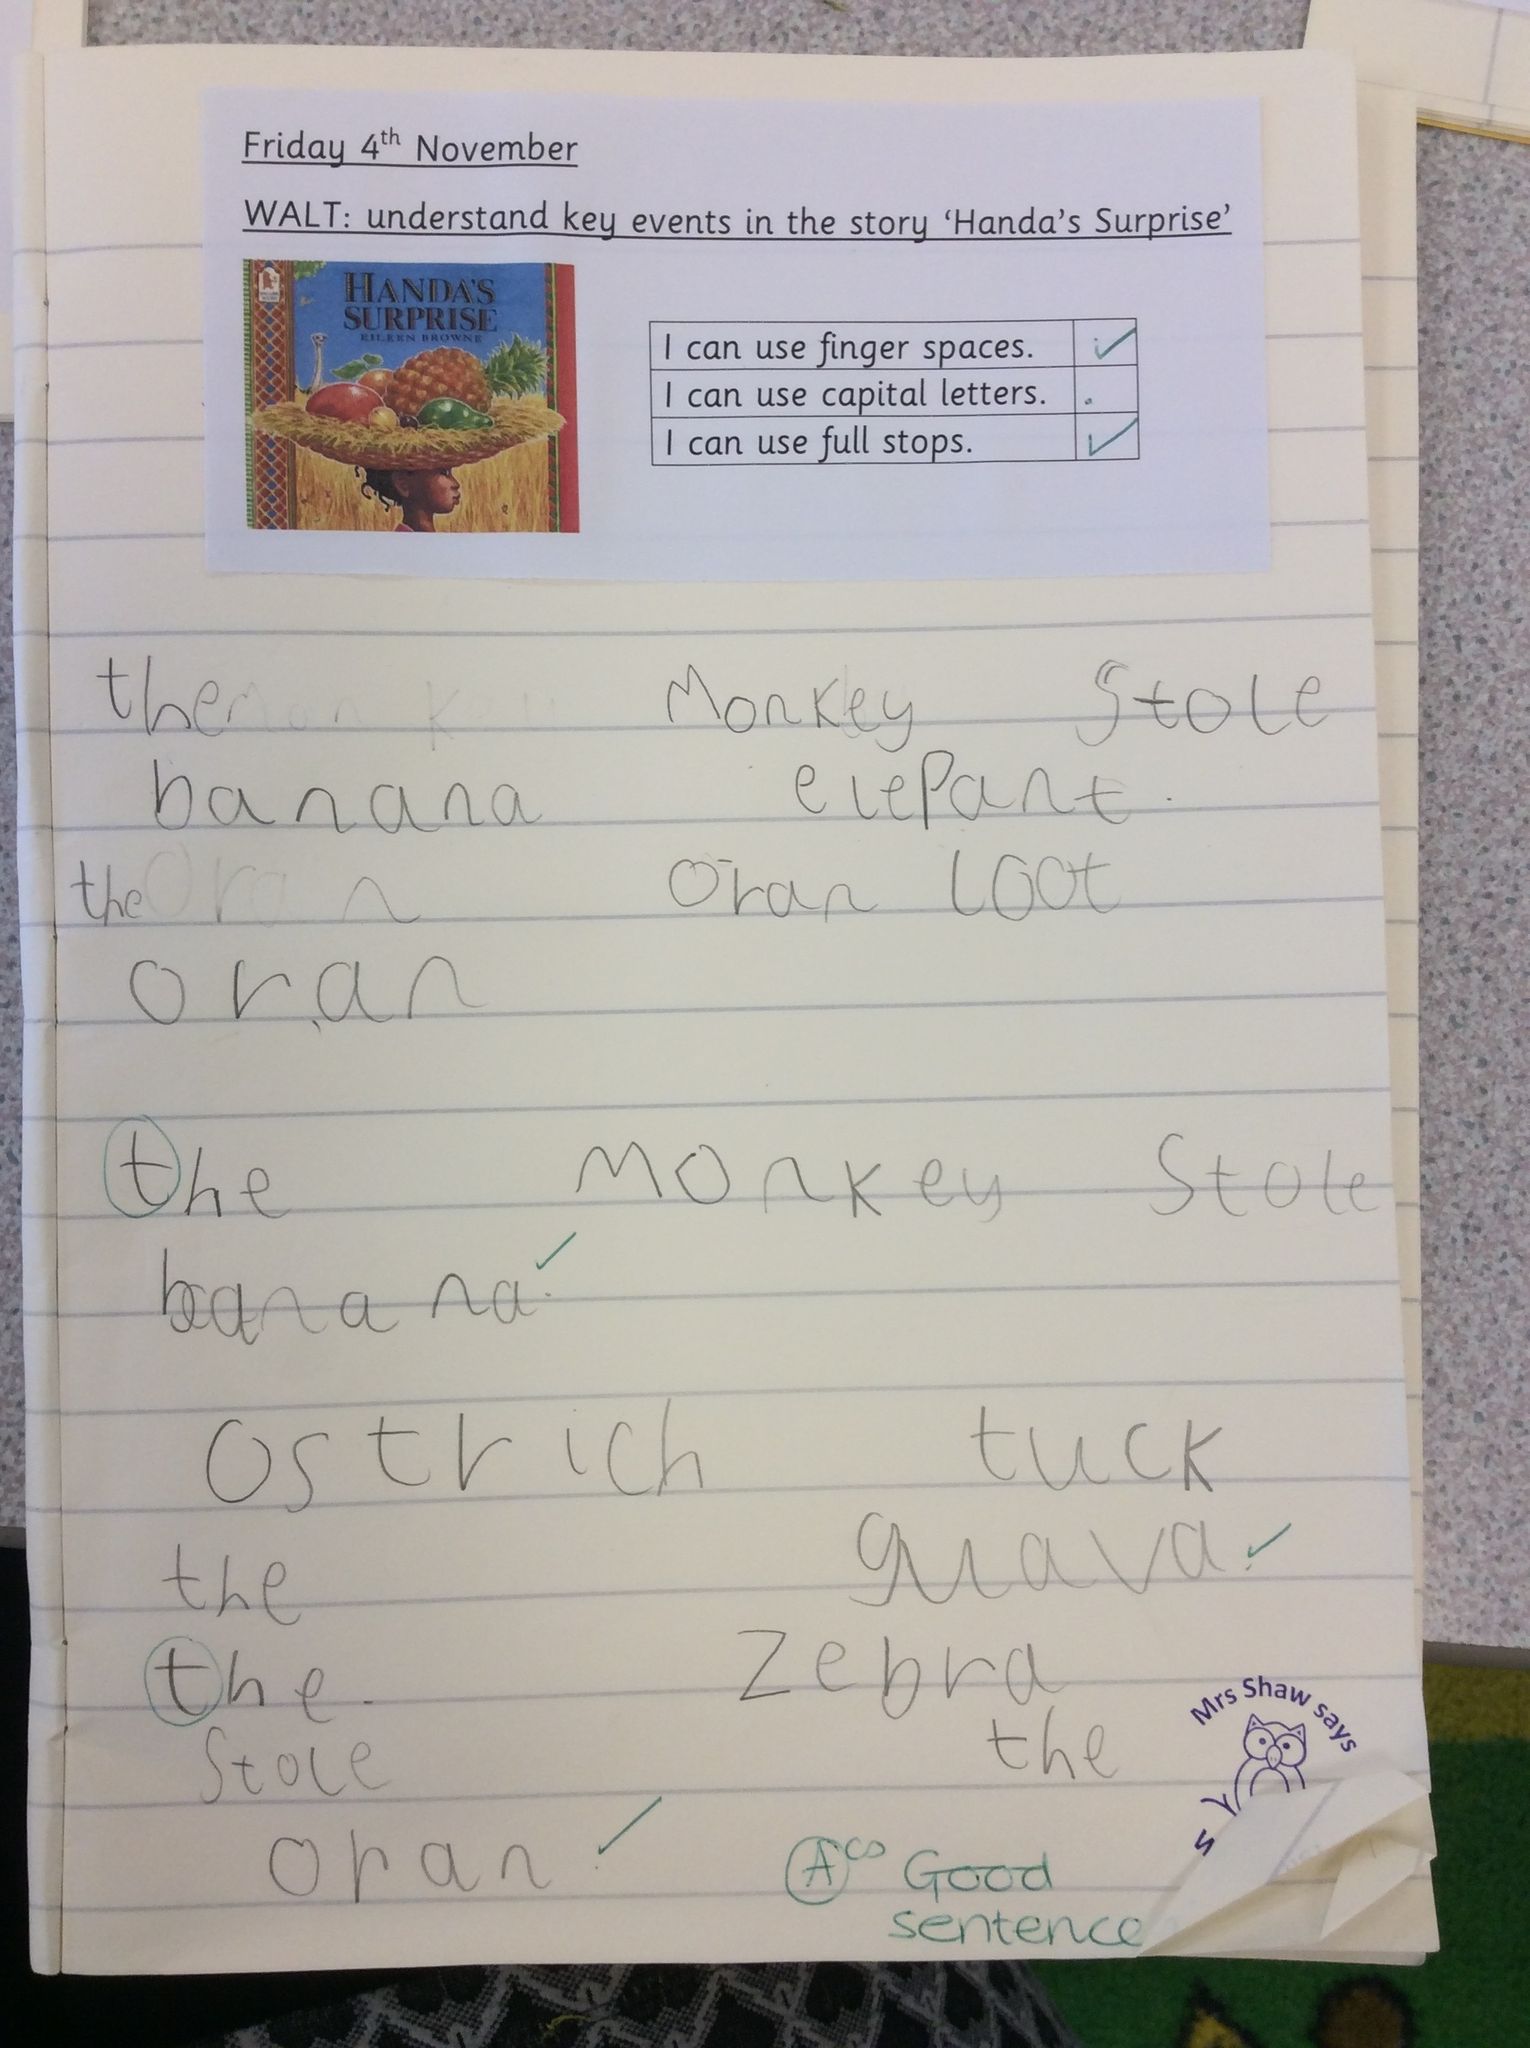 Friday 4th November
WALT: understand key events in the story ‘Handa’s Surprise’
HANDA'S
SURPRISE
EILEEN BROWNE
I can use finger spaces. ✓
I can use capital letters. .
I can use full stops. ✓
the Monkey Stole
banana elepant.
the oran loot
oran
the Monkey Stole
banana. ✓
Ostrich tuck
the guava. ✓
the. Zebra
Stole the
oran. ✓
Mrs Shaw says
A CS Good
sentence